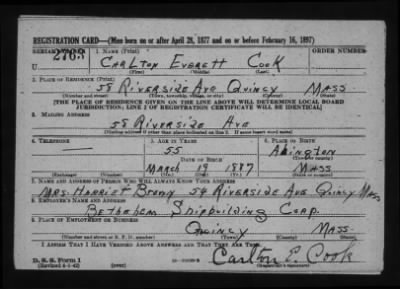 REGISTRATION CARD—(Men born on or after April 28, 1877 and on or before February 16, 1897)
SERIAL NUMBER 1. NAME (Print) ORDER NUMBER
U 2763 CARLTON EVERETT COOK
(First) (Middle) (Last)
2. PLACE OF RESIDENCE (Print)
58 RIVERSIDE AVE QUINCY MASS
(Number and street) (Town, township, village, or city) (County) (State)
[THE PLACE OF RESIDENCE GIVEN ON THE LINE ABOVE WILL DETERMINE LOCAL BOARD
JURISDICTION; LINE 2 OF REGISTRATION CERTIFICATE WILL BE IDENTICAL]
3. MAILING ADDRESS
58 RIVERSIDE AVE
(Mailing address if other than place indicated on line 2. If same insert word same)
4. TELEPHONE 5. AGE IN YEARS 6. PLACE OF BIRTH
55 ABINGTON
DATE OF BIRTH (Town or county)
MARCH 19 1887 MASS
(Exchange) (Number) (Mo.) (Day) (Yr.) (State or country)
7. NAME AND ADDRESS OF PERSON WHO WILL ALWAYS KNOW YOUR ADDRESS
MRS. HARRIET 54 RIVERSIDE AVE QUINCY MASS
8. EMPLOYER'S NAME AND ADDRESS
BETHLEHEM SHIPBUILDING CORP.
9. PLACE OF EMPLOYMENT OR BUSINESS
QUINCY MASS
(Number and street or R. F. D. number) (Town) (County) (State)
I AFFIRM THAT I HAVE VERIFIED ABOVE ANSWERS AND THAT THEY ARE TRUE.
D. S. S. Form 1
(Revised 4-1-42) Carlton E. Cook
(Registrant's signature)